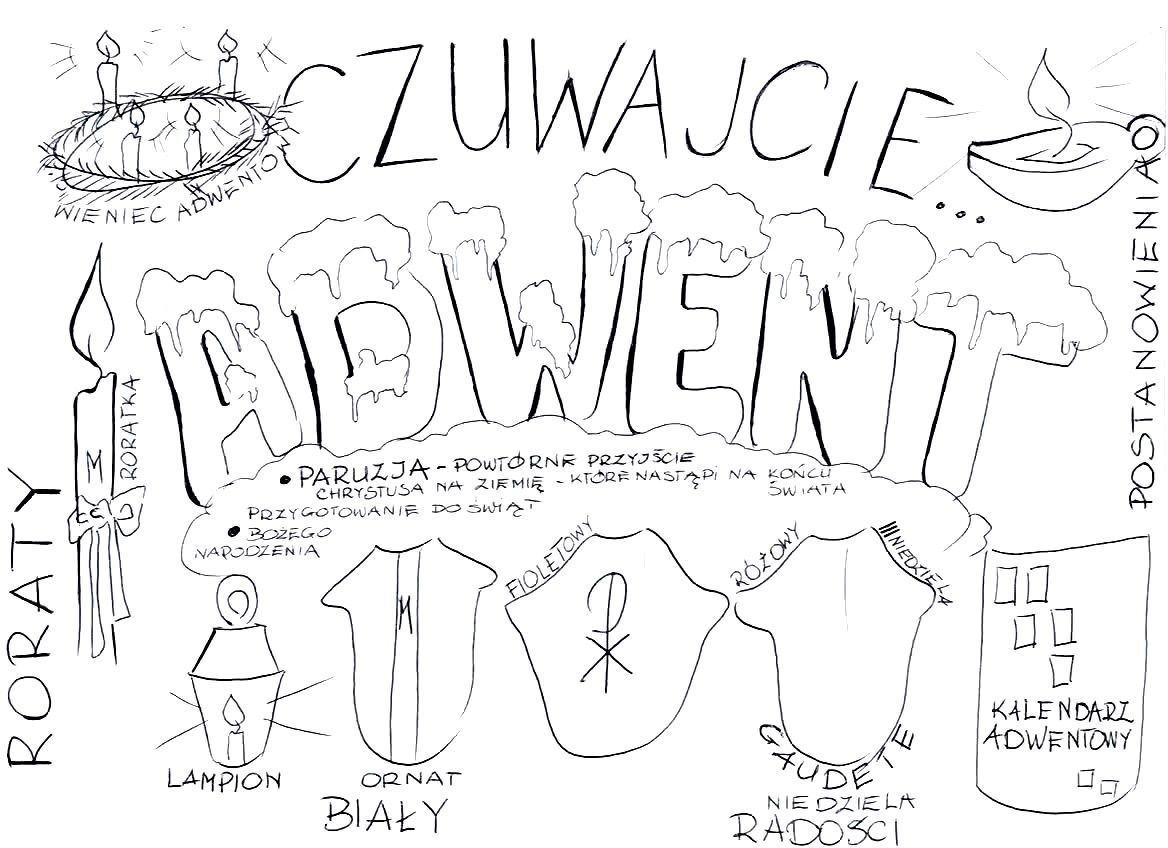 CZUWAJCIE...
WIENIEC ADWENTO
W
ADWENT
POSTANOWIENIA
RORATKA
M
RORATY
• PARUZJA - POWTÓRNE PRZYJŚCIE
CHRYSTUSA NA ZIEMIĘ - KTÓRE NASTĄPI NA KOŃCU
ŚWIATA
PRZYGOTOWANIE DO ŚWIĄT
• BOŻEGO
NARODZENIA
FIOLETOWY
RÓŻOWY
III NIEDZIELA
M
LAMPION
ORNAT
BIAŁY
GAUDETE
NIEDZIELA
RADOŚCI
KALENDARZ
ADWENTOWY